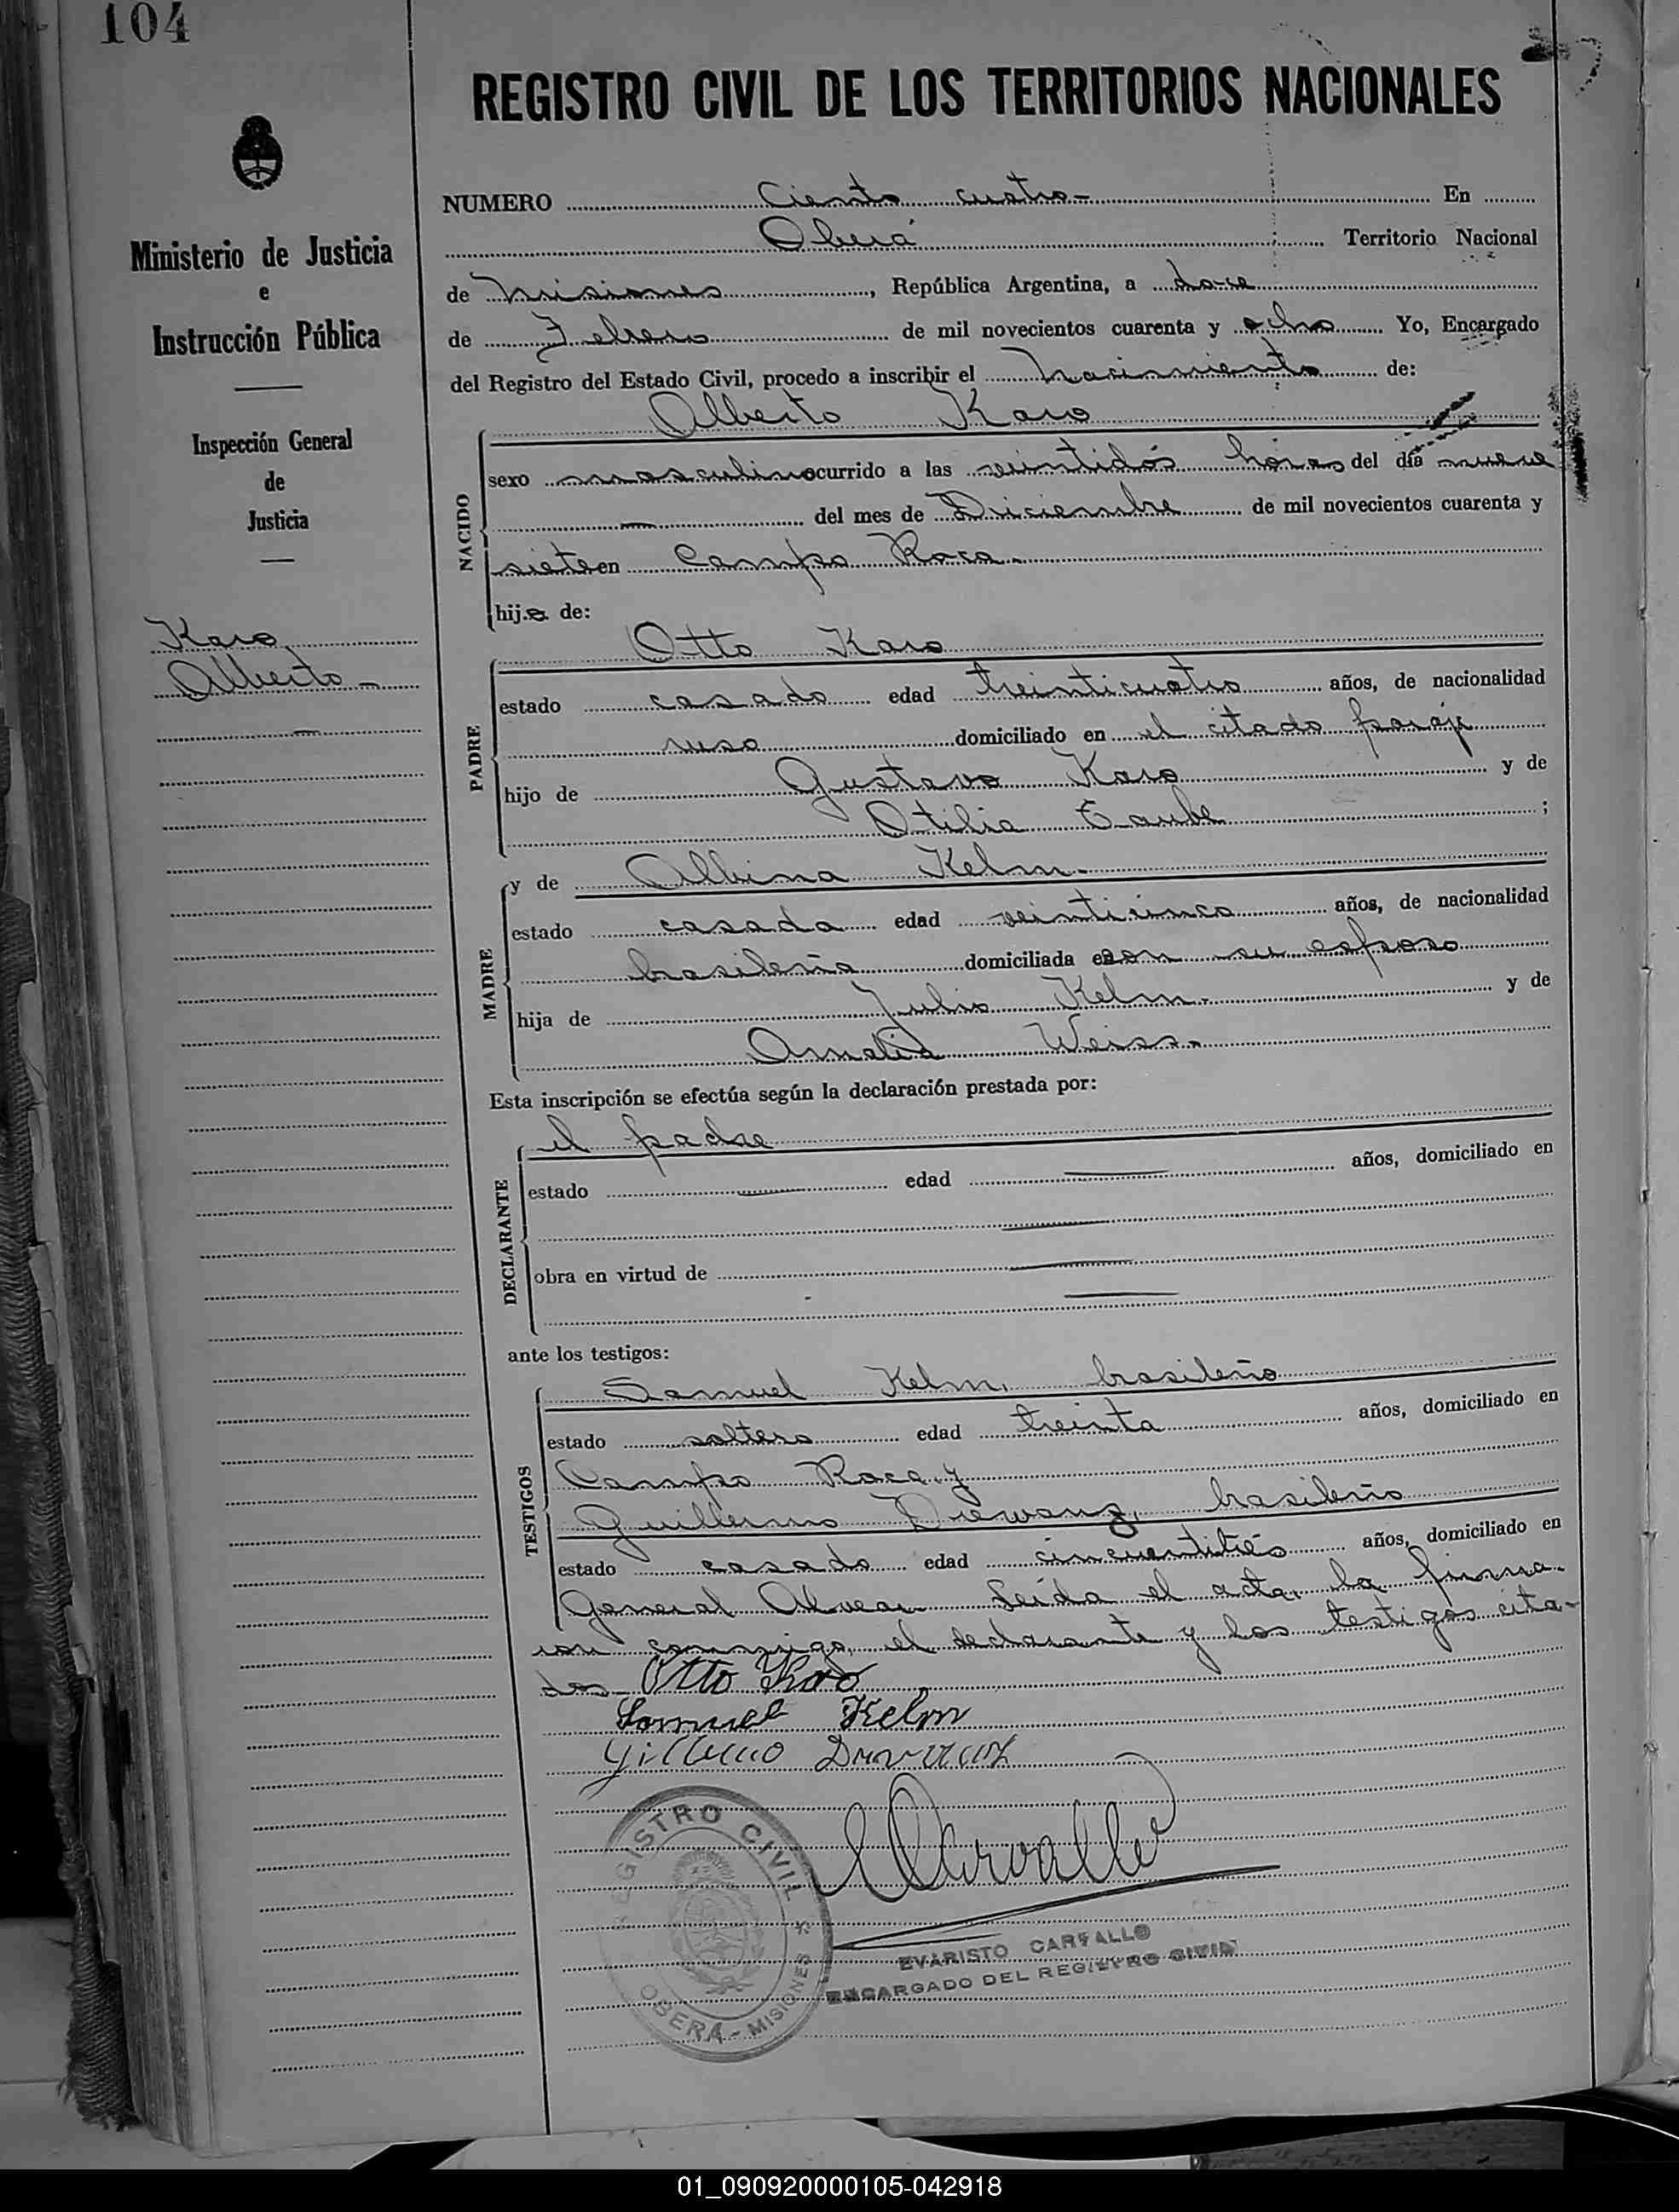 104
REGISTRO CIVIL DE LOS TERRITORIOS NACIONALES
Ministerio de Justicia
e
Instrucción Pública
Inspección General
de
Justicia
Karo
Alberto -
NUMERO Ciento cuatro - En
Oberá Territorio Nacional
de Misiones, República Argentina, a doce
de Febrero de mil novecientos cuarenta y ocho Yo, Encargado
del Registro del Estado Civil, procedo a inscribir el nacimiento de:
Alberto Karo
NACIDO
sexo masculino ocurrido a las veintidós horas del día nueve
del mes de Diciembre de mil novecientos cuarenta y
siete en Campo Roca.
hijo de:
Otto Karo
PADRE
estado casado edad treinticuatro años, de nacionalidad
ruso domiciliado en el citado paraje
hijo de Gustavo Karo y de
Otilia Taube ;
y de Albina Kelm.
MADRE
estado casada edad veinticinco años, de nacionalidad
brasileña domiciliada con su esposo
hija de Julio Kelm. y de
Amalia Weiss.
Esta inscripción se efectúa según la declaración prestada por:
el padre
DECLARANTE
estado edad años, domiciliado en
obra en virtud de
ante los testigos:
Samuel Kelm, brasileño
TESTIGOS
estado soltero edad treinta años, domiciliado en
Campo Roca y
Guillermo Drewanz, brasileño
estado casado edad cincuentitrés años, domiciliado en
General Alvear. Leída el acta, la firma-
ron conmigo, el declarante y los testigos cita-
dos - Otto Karo
Samuel Kelm
EVARISTO CARVALLO
ENCARGADO DEL REGISTRO CIVIL
REGISTRO CIVIL
OBERÁ - MISIONES
01_090920000105-042918